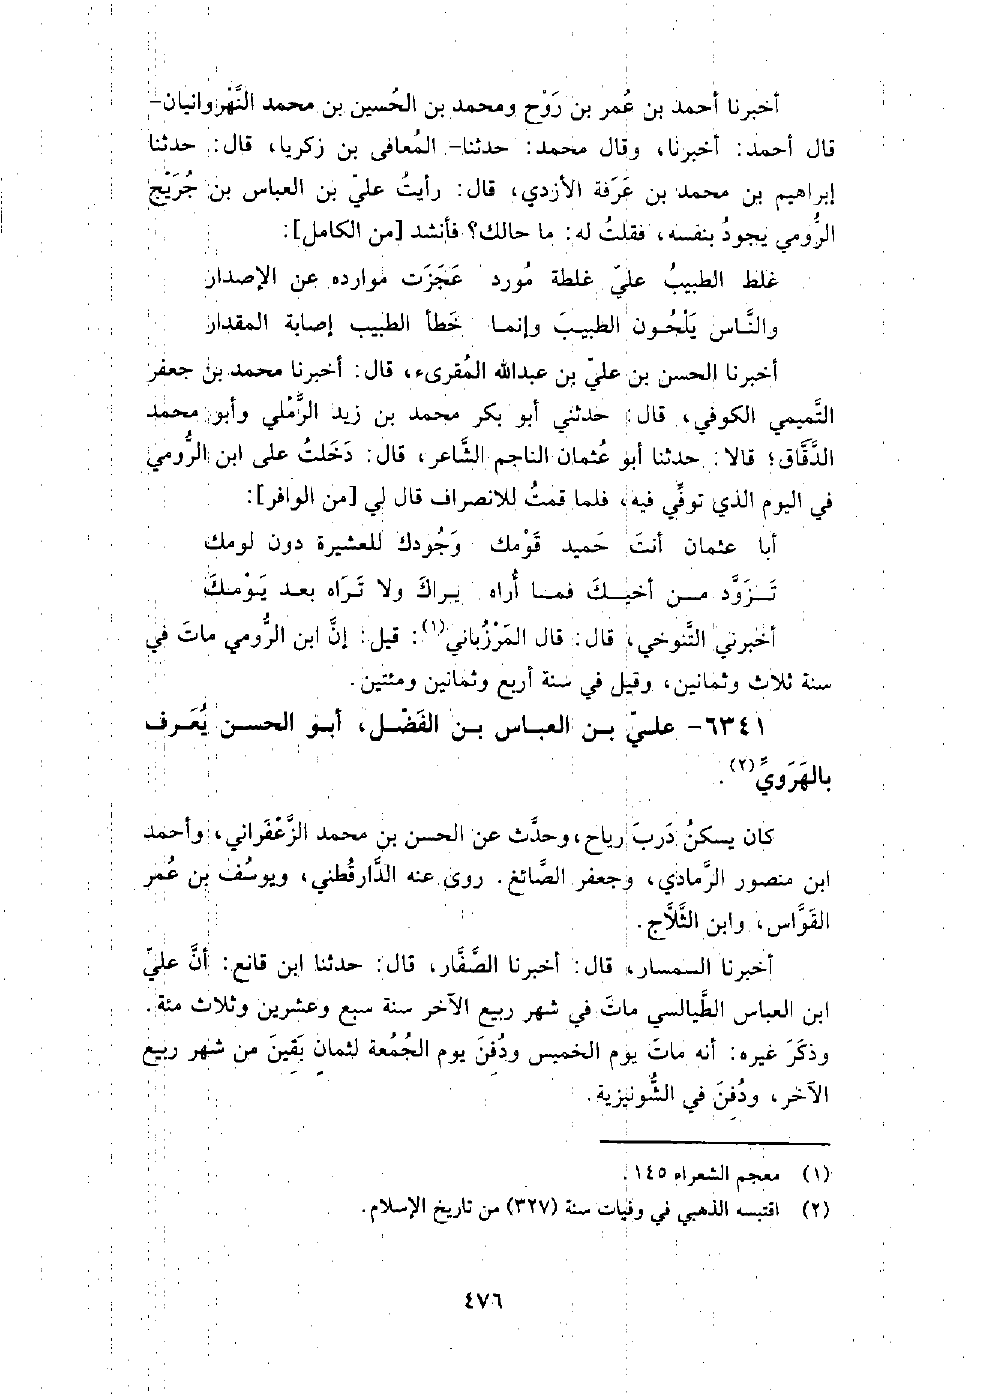 أخبرنا أحمد بن عُمر بن رَوْح ومحمد بن الحُسين بن محمد النَّهْروانيان-
قال أحمد: أخبرنا، وقال محمد: حدثنا- المُعافى بن زكريا، قال: حدثنا
إبراهيم بن محمد بن عَرَفة الأزدي، قال: رأيتُ عليّ بن العباس بن جُرَيْج
الرُّومي يجودُ بنفسه، فقلتُ له: ما حالك؟ فأنشد [من الكامل]:
غلط الطبيبُ عليّ غلطة مُورد عَجَزَت موارده عن الإصدار
والنَّاس يَلْحُون الطبيبَ وإنما خَطأ الطبيب إصابة المقدار
أخبرنا الحسن بن عليّ بن عبدالله المُقرىء، قال: أخبرنا محمد بن جعفر
التَّميمي الكوفي، قال: حدثني أبو بكر محمد بن زيد الرَّمْلي وأبو محمد
الدَّقَّاق؛ قالا: حدثنا أبو عُثمان الناجم الشَّاعر، قال: دَخَلتُ على ابن الرُّومي
في اليوم الذي توفِّي فيه، فلما قمتُ للانصراف قال لي [من الوافر]:
أبا عثمان أنتَ حَميد قَوْمك وَجُودك للعشيرة دون لومك
تَـزَوَّد مـن أخيـكَ فمـا أُراه يـراكَ ولا تَـرَاه بعـد يَـوْمـكَ
أخبرني التَّنوخي، قال: قال المَرْزُباني(١): قيل: إنَّ ابن الرُّومي ماتَ في
سنة ثلاث وثمانين، وقيل في سنة أربع وثمانين ومئتين.
٦٣٤١- عليّ بن العباس بن الفَضْل، أبو الحسن يُعَرف
بالهَرَويِّ(٢).
كان يسكنُ دَربَ رياح، وحدَّث عن الحسن بن محمد الزَّعْفَراني، وأحمد
ابن منصور الرَّمادي، وجعفر الصَّائغ. روى عنه الدَّارقُطني، ويوسُف بن عُمر
القَوَّاس، وابن الثَّلَّاج.
أخبرنا السمسار، قال: أخبرنا الصَّفَّار، قال: حدثنا ابن قانع: أنَّ عليّ
ابن العباس الطَّيالسي ماتَ في شهر ربيع الآخر سنة سبع وعشرين وثلاث مئة.
وذكَرَ غيره: أنه ماتَ يوم الخميس ودُفنَ يوم الجُمُعة لثمانٍ بَقِينَ من شهر ربيع
الآخر، ودُفِنَ في الشُّونيزية.
(١) معجم الشعراء ١٤٥.
(٢) اقتبسه الذهبي في وفيات سنة (٣٢٧) من تاريخ الإسلام.
٤٧٦